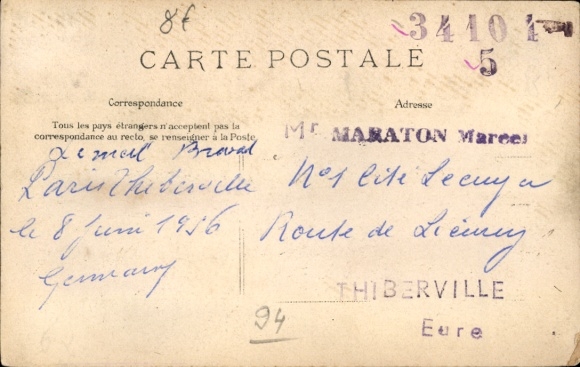 8f
34104
5
CARTE POSTALE
Correspondance
Tous les pays étrangers n'acceptent pas la
correspondance au recto, se renseigner à la Poste
Paris Thiberville
le 8 Juin 1956
Germany
94
Adresse
Mr MARATON Marcel
N°1 Cité
Route de
THIBERVILLE
Eure